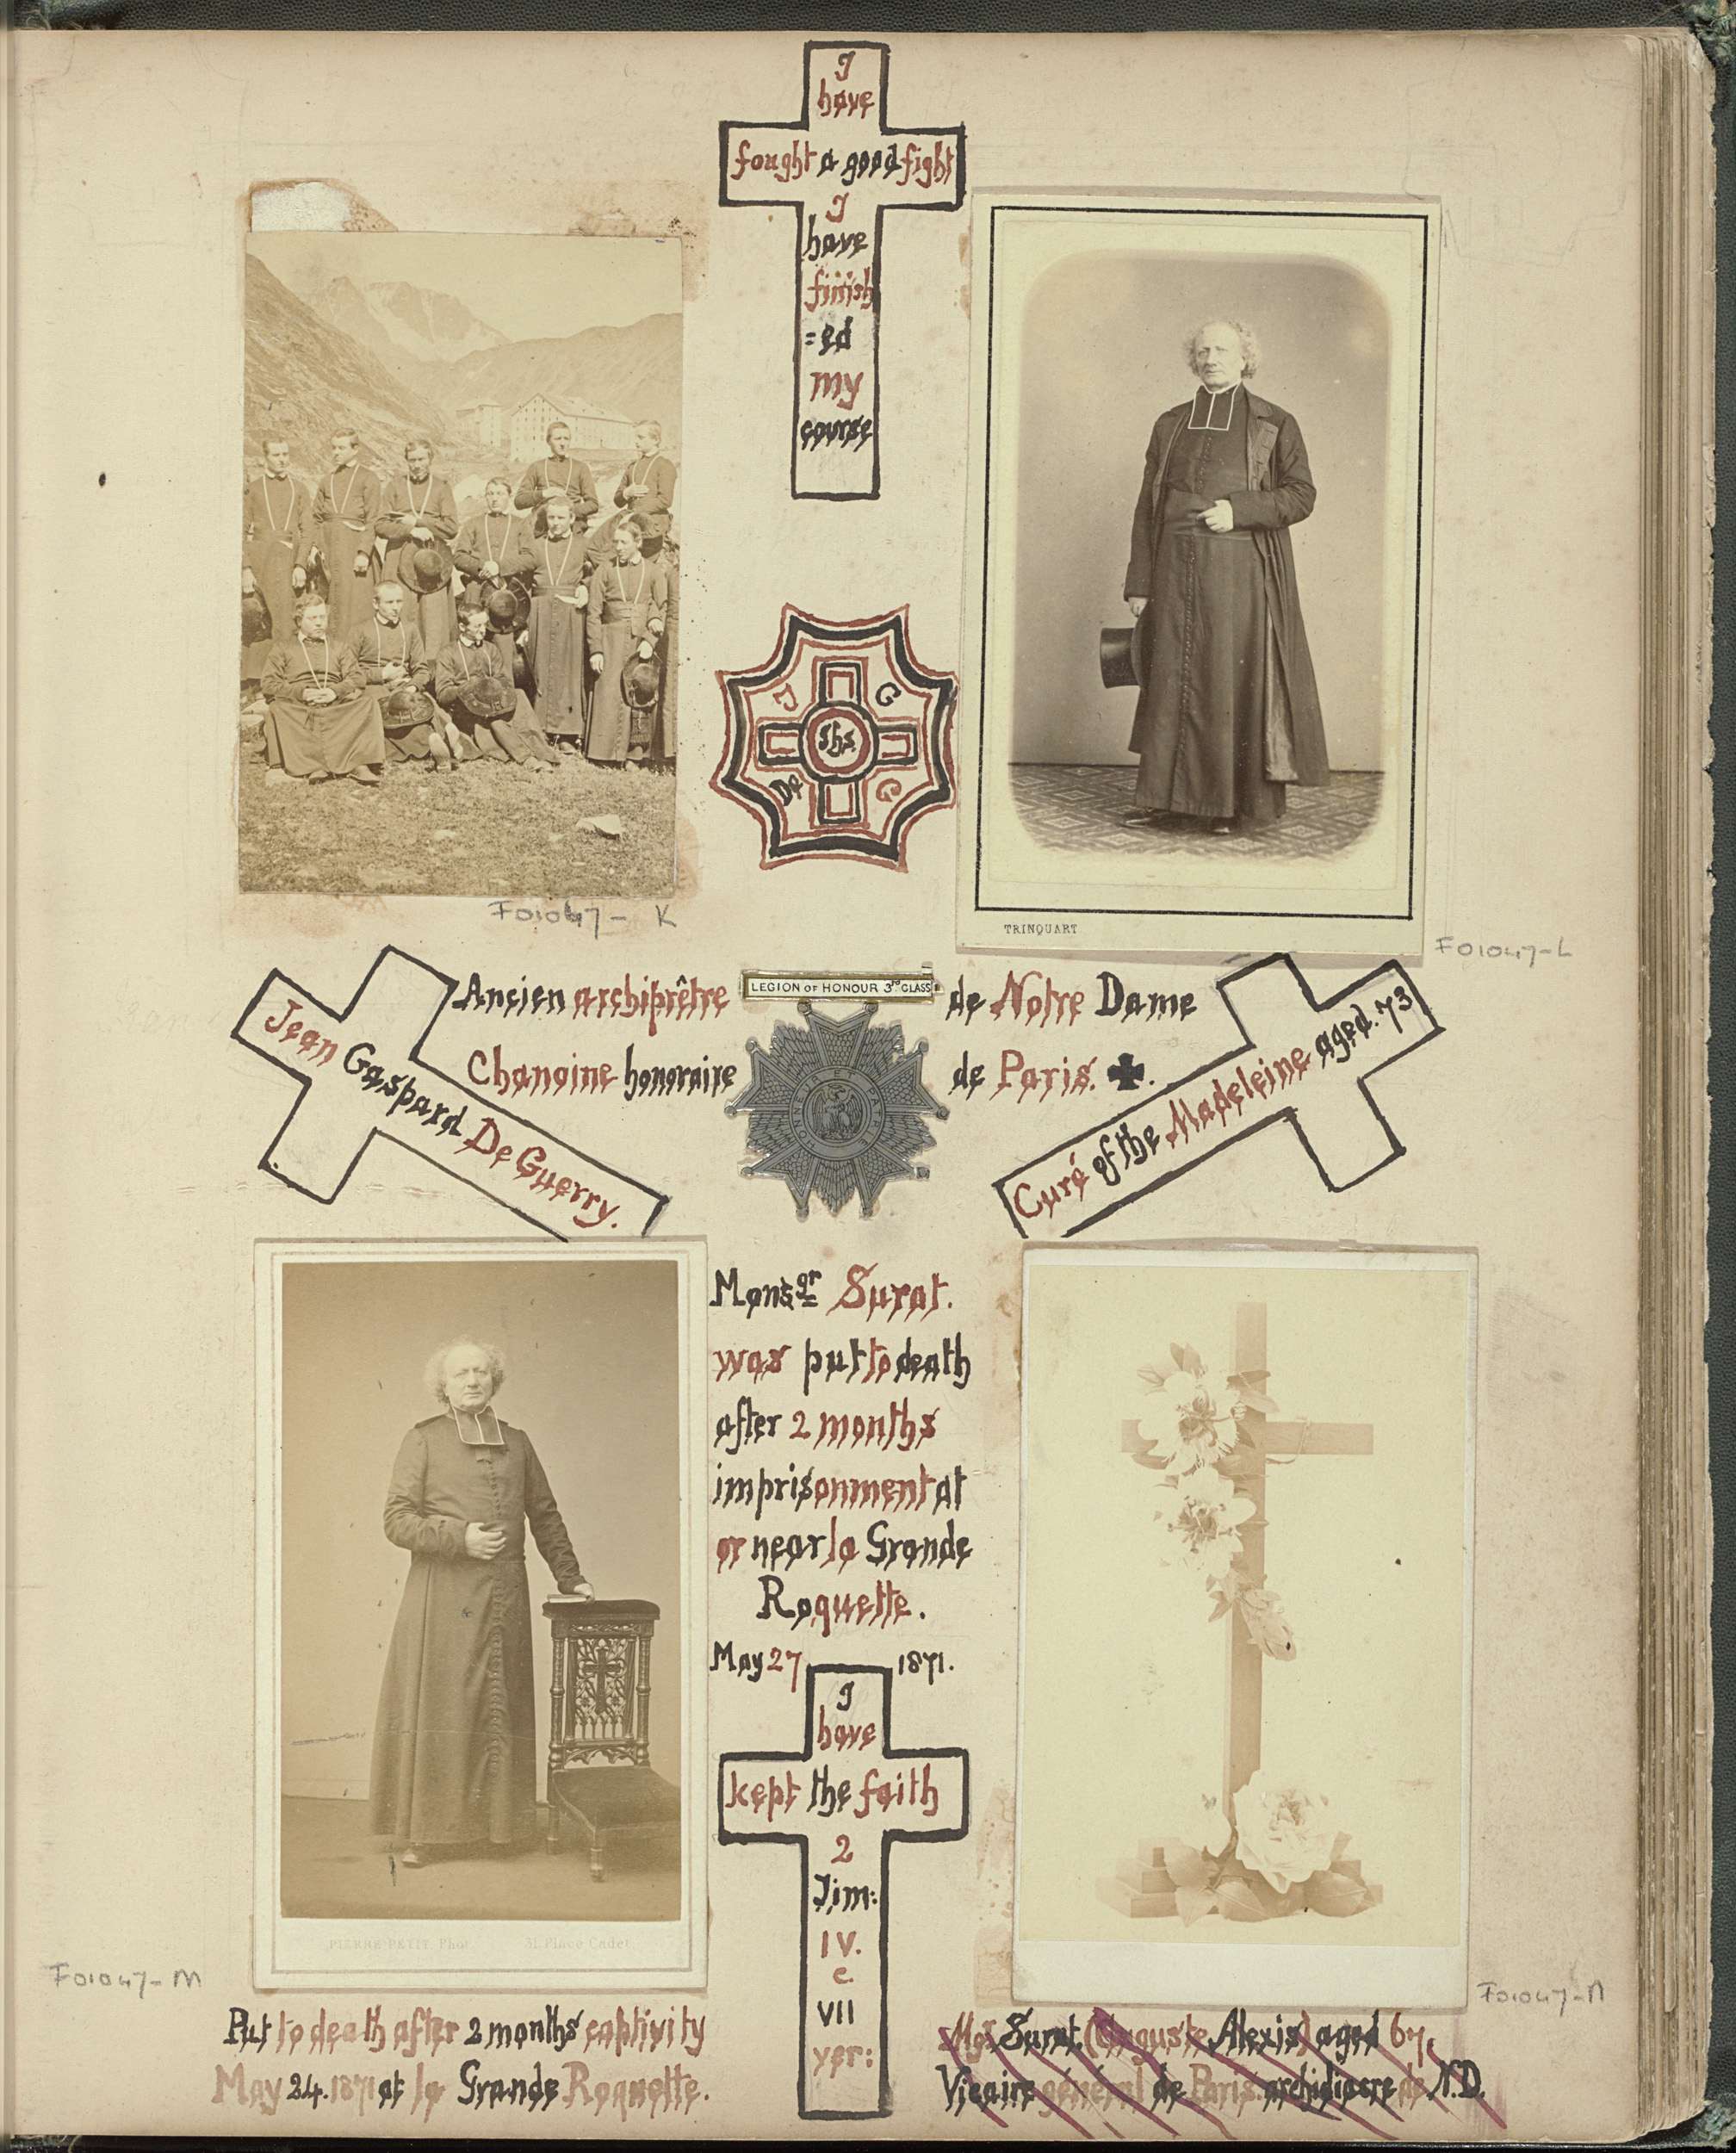 I
have
fought a good fight
I
have
finish
=ed
my
course
J G
Jhs.
De G
TRINQUART
F01047-K
F01047-L
Ancien archiprêtre
LEGION OF HONOUR 3RD CLASS
de Notre Dame
Chanoine honoraire
de Paris. ✠.
Jean Gaspard De Guerry.
Curé of the Madeleine aged. 73
HONNEUR ET PATRIE
Monsgr Surat.
was put to death
after 2 months
imprisonment at
or near la Grande
Roquette.
May 27 1871.
I
have
kept the faith
2
Tim:
IV.
c.
VII
ver:
PIERRE PETIT, Phot. 31, Place Cadet
F01047-M
F01047-N
Put to death after 2 months captivity
May 24. 1871 at la Grande Roquette.
Mgr Surat (Auguste Alexis) aged 67.
Vicaire général de Paris. archidiacre de N.D.